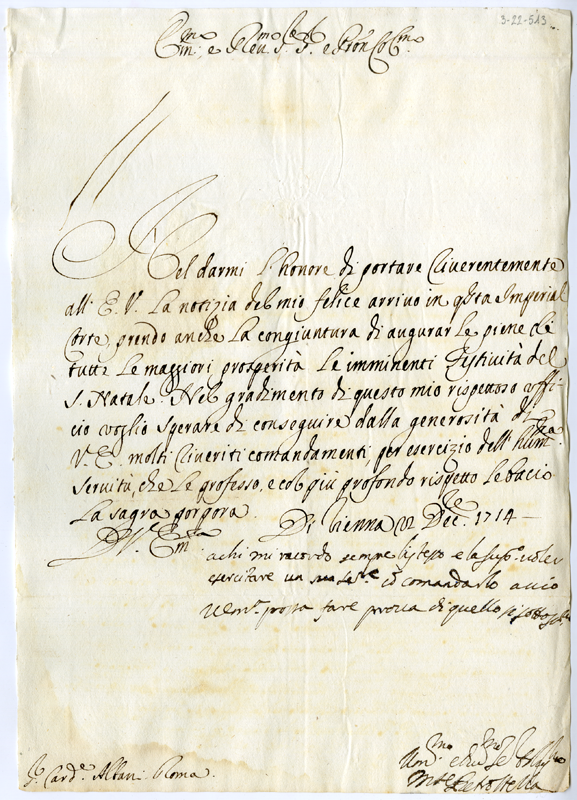 3-22-543
Em.mo e Rev.mo S.r P.
Nel darmi l'honore di portare riverentemente
all'E. V. la notizia del mio felice arrivo in q.sta Imperial
Corte, prendo anche la congiuntura di augurarLe piene di
tutte le maggiori prosperità le imminenti Festività del
S. Natale. Nel gradimento di questo mio rispettoso uffi-
cio voglio sperare di conseguire dalla generosità di
V. E. molti riveriti comandamenti per esercizio dell'hum.ma
servitù, che Le professo, e col più profondo rispetto Le bacio
la sagra porpora.
Di Vienna 22 Dec.re 1714
D. V.ra Em.za
a chi mi racordo sempre l'istesso e la sup.co voler
esercitare un suo se.re co comandarlo accio
possa fare prova di quello
S.r Card.e Albani Roma.